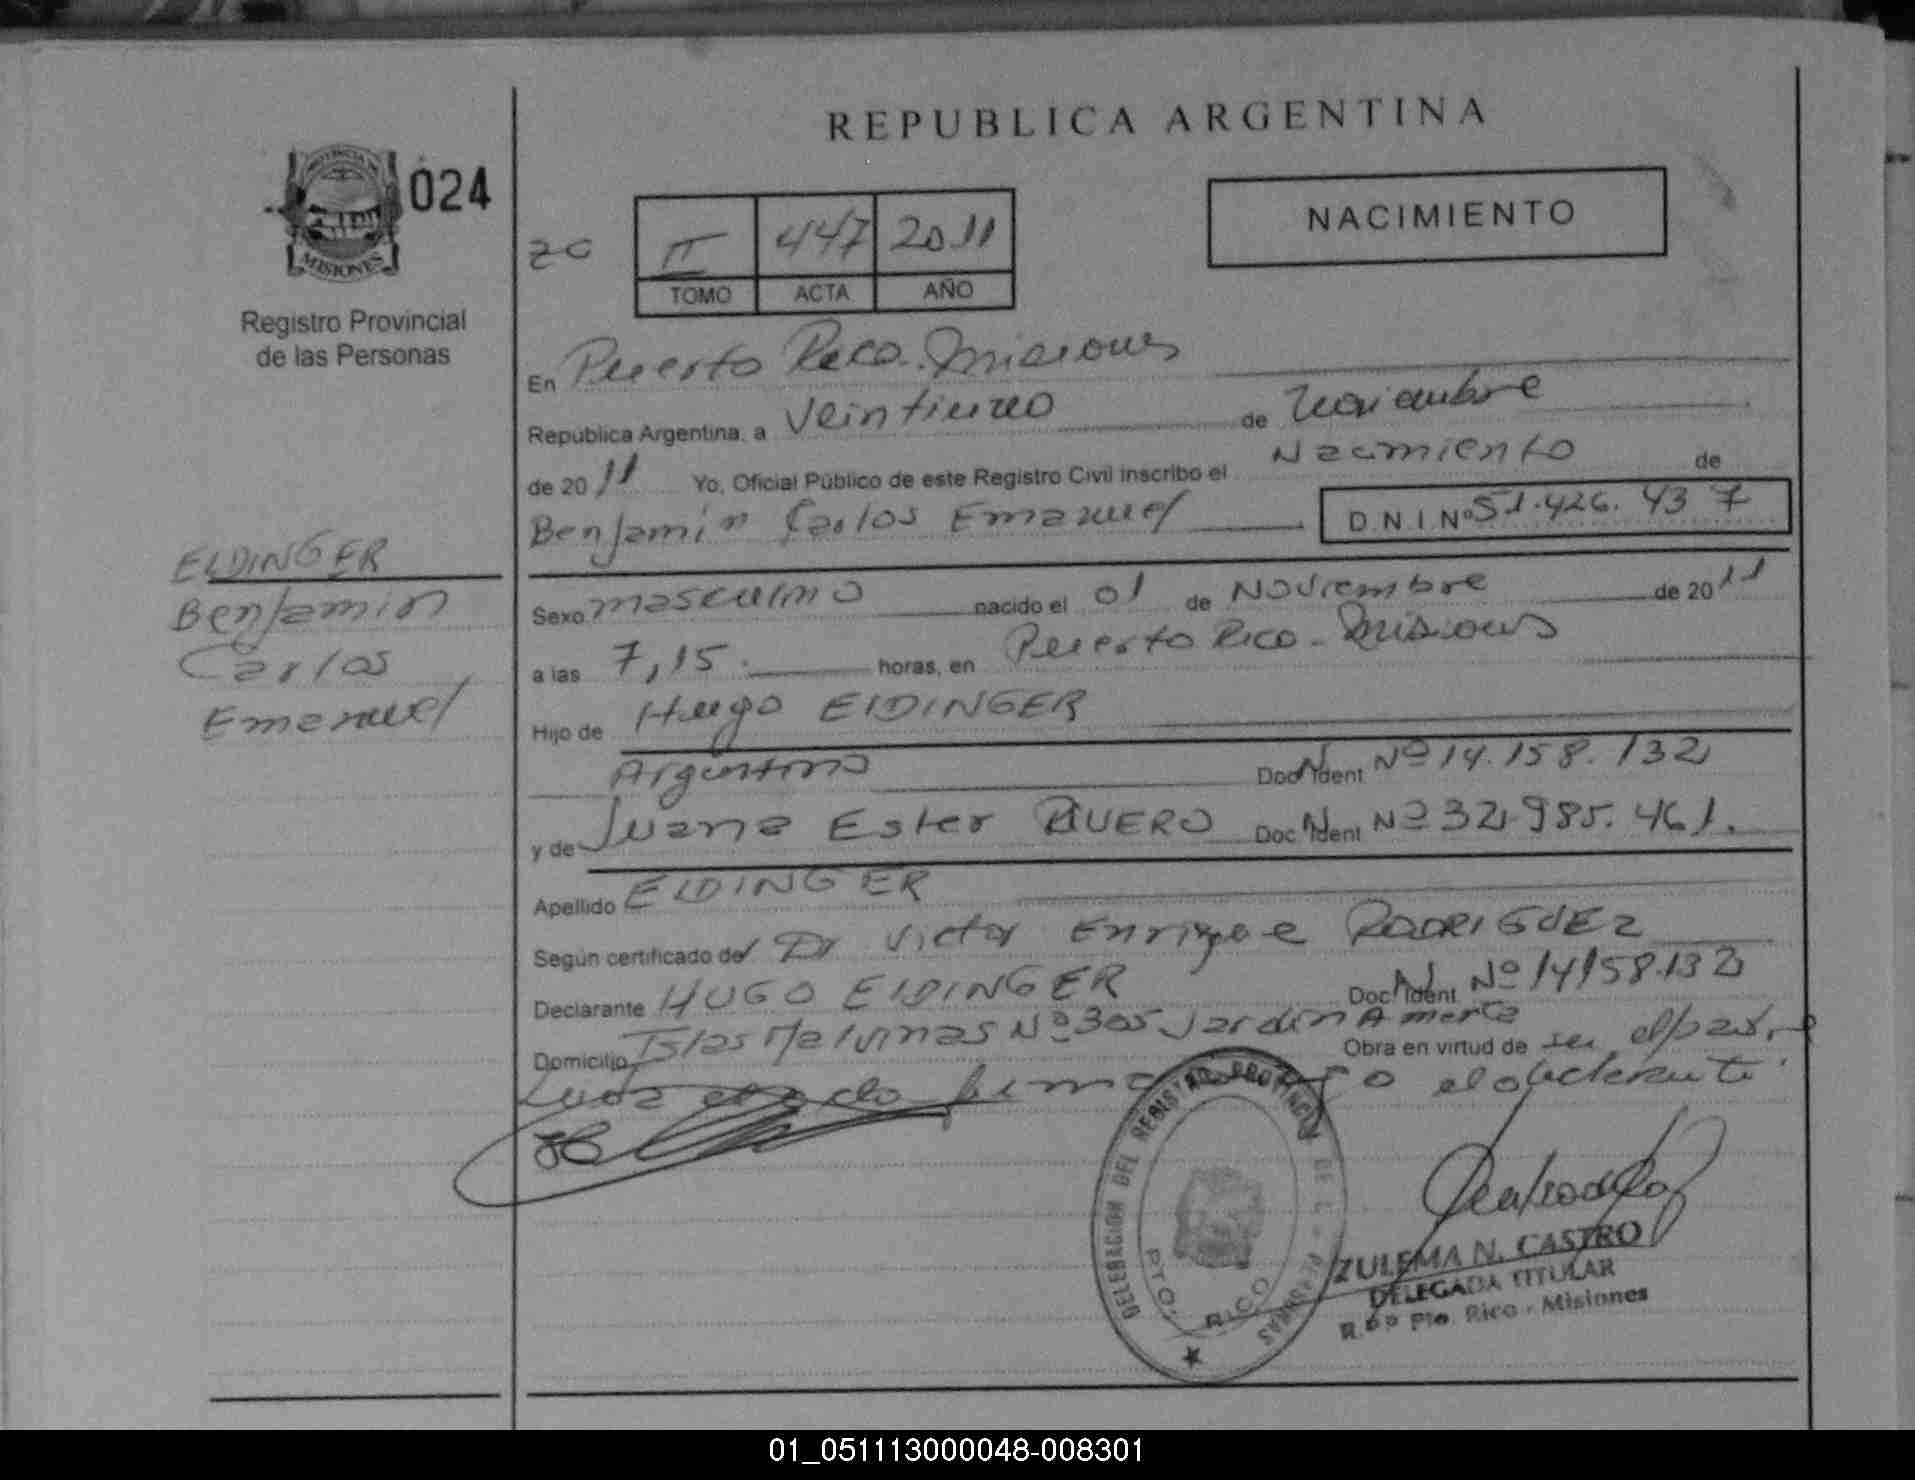 REPUBLICA ARGENTINA
PROVINCIA DE
MISIONES
024
Registro Provincial
de las Personas
NACIMIENTO
II 447 2011
TOMO ACTA AÑO
En Puerto Rico. Misiones
República Argentina, a Veintiuno de Noviembre
de 2011 Yo, Oficial Público de este Registro Civil inscribo el Nacimiento de
Benjamín Carlos Emanuel D N I Nº 51.426.437
ELDINGER
Benjamín
Carlos
Emanuel
Sexo masculino nacido el 01 de Noviembre de 2011
a las 7,15. horas, en Puerto Rico - Misiones
Hijo de Hugo ElDINGER
Argentino Doc Ident Nº 14.158.132
y de Juana Ester RIVERO Doc Ident Nº 32.985.461.
Apellido ELDINGER
Según certificado del Dr Victor Enrique RODRIGUEZ
Declarante HUGO ElDINGER Doc Ident Nº 14158.132
Domicilio Islas Malvinas Nº 305 Jardin America Obra en virtud de ser el padre
firma el declarante.
DELEGACION DEL REGISTRO PROVINCIAL DE L. PERSONAS
PTO. RICO
ZULEMA N. CASTRO
DELEGADA TITULAR
R.P.P Pto. Rico - Misiones
01_051113000048-008301